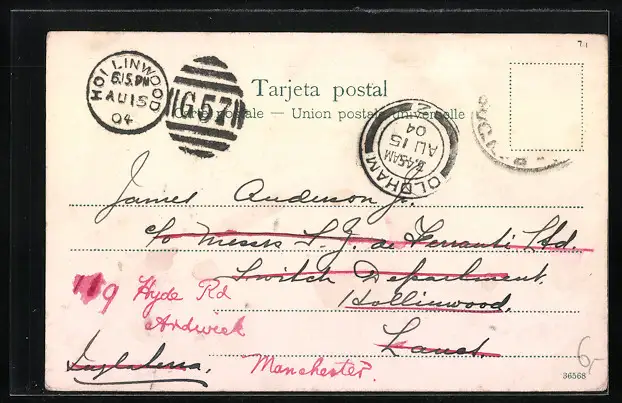 HOLLINWOOD
6.15.PM
AU 15
04
G57
Tarjeta postal
Carte postale — Union postale universelle
OLDHAM
4.45AM
AU 15
04
2
James Anderson Jr.
c/o Messrs S. Z. de Ferranti Ltd.
Switch Department.
Hollinwood.
Lancs.
Inglaterra.
119 Hyde Rd
Ardwick
Manchester.
6,-
36568